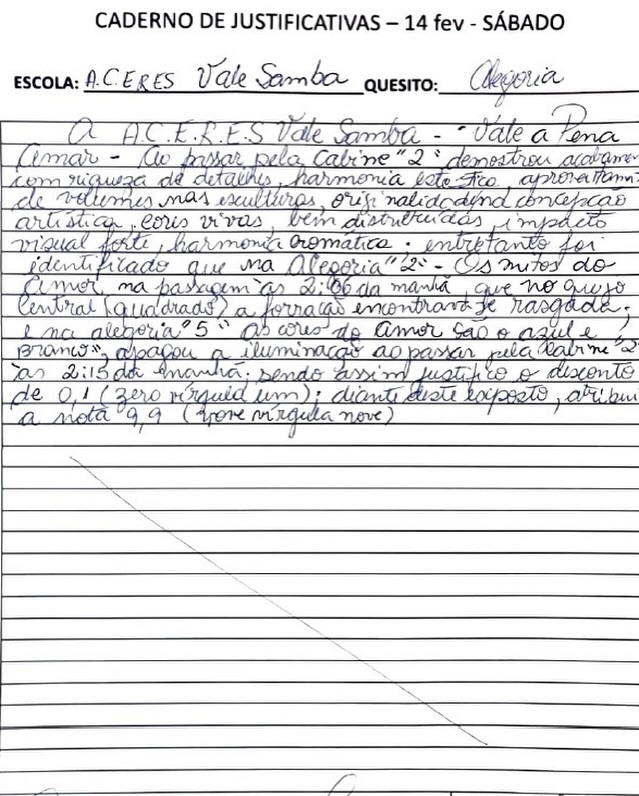 CADERNO DE JUSTIFICATIVAS – 14 fev - SÁBADO
ESCOLA: A.C.E.R.E.S Vale Samba QUESITO: Alegoria
A A.C.E.R.E.S Vale Samba - "Vale a Pena
Amar - Ao passar pela cabine "2" demostrou acabamen
com riqueza de detalhes, harmonia estética, aproveitamen
de volumes nas esculturas, originalidade na concepção
artística, cores vivas, bem distribuídas, impacto
visual forte, harmonia cromática; entretanto foi
identificado que na Alegoria "2" - Os mitos do
Amor, na passagem às 2:06 da manhã, que no queijo
central (quadrado) a forração encontrava-se rasgada;
e na alegoria "5" As cores do amor são o azul e
Branco", apagou a iluminação ao passar pela Cabine "2"
às 2:15 da manhã; sendo assim justifico o desconto
de 0,1 (zero vírgula um); diante deste exposto, atribui
a nota 9,9 (nove vírgula nove)